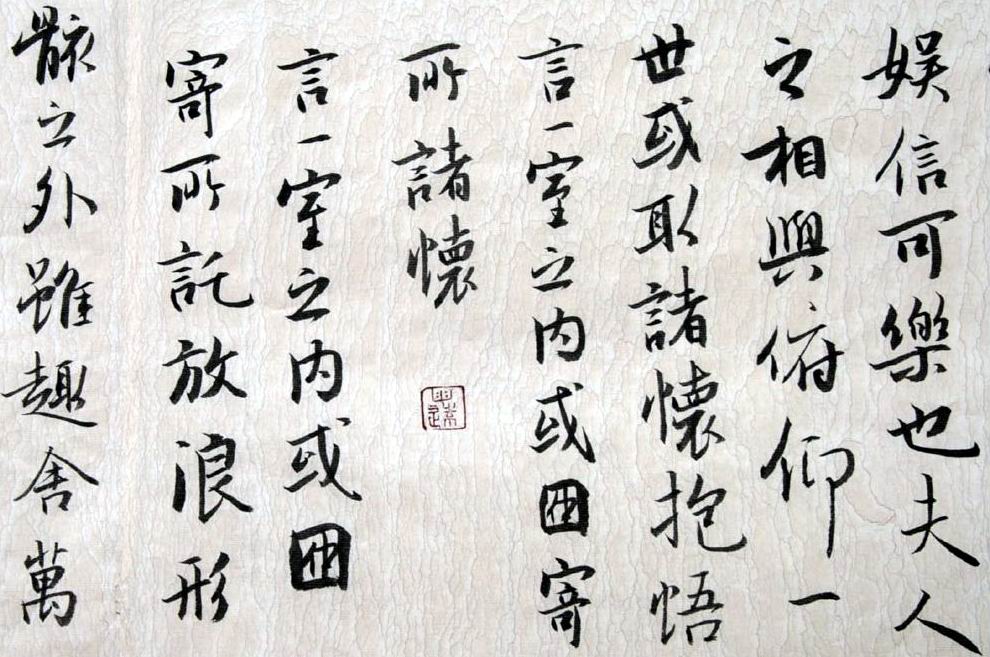 娛信可樂也夫人
之相與俯仰一
世或取諸懷抱悟
言一室之内或因寄
所諸懷
言一室之内或因
寄所託放浪形
骸之外雖趣舍萬